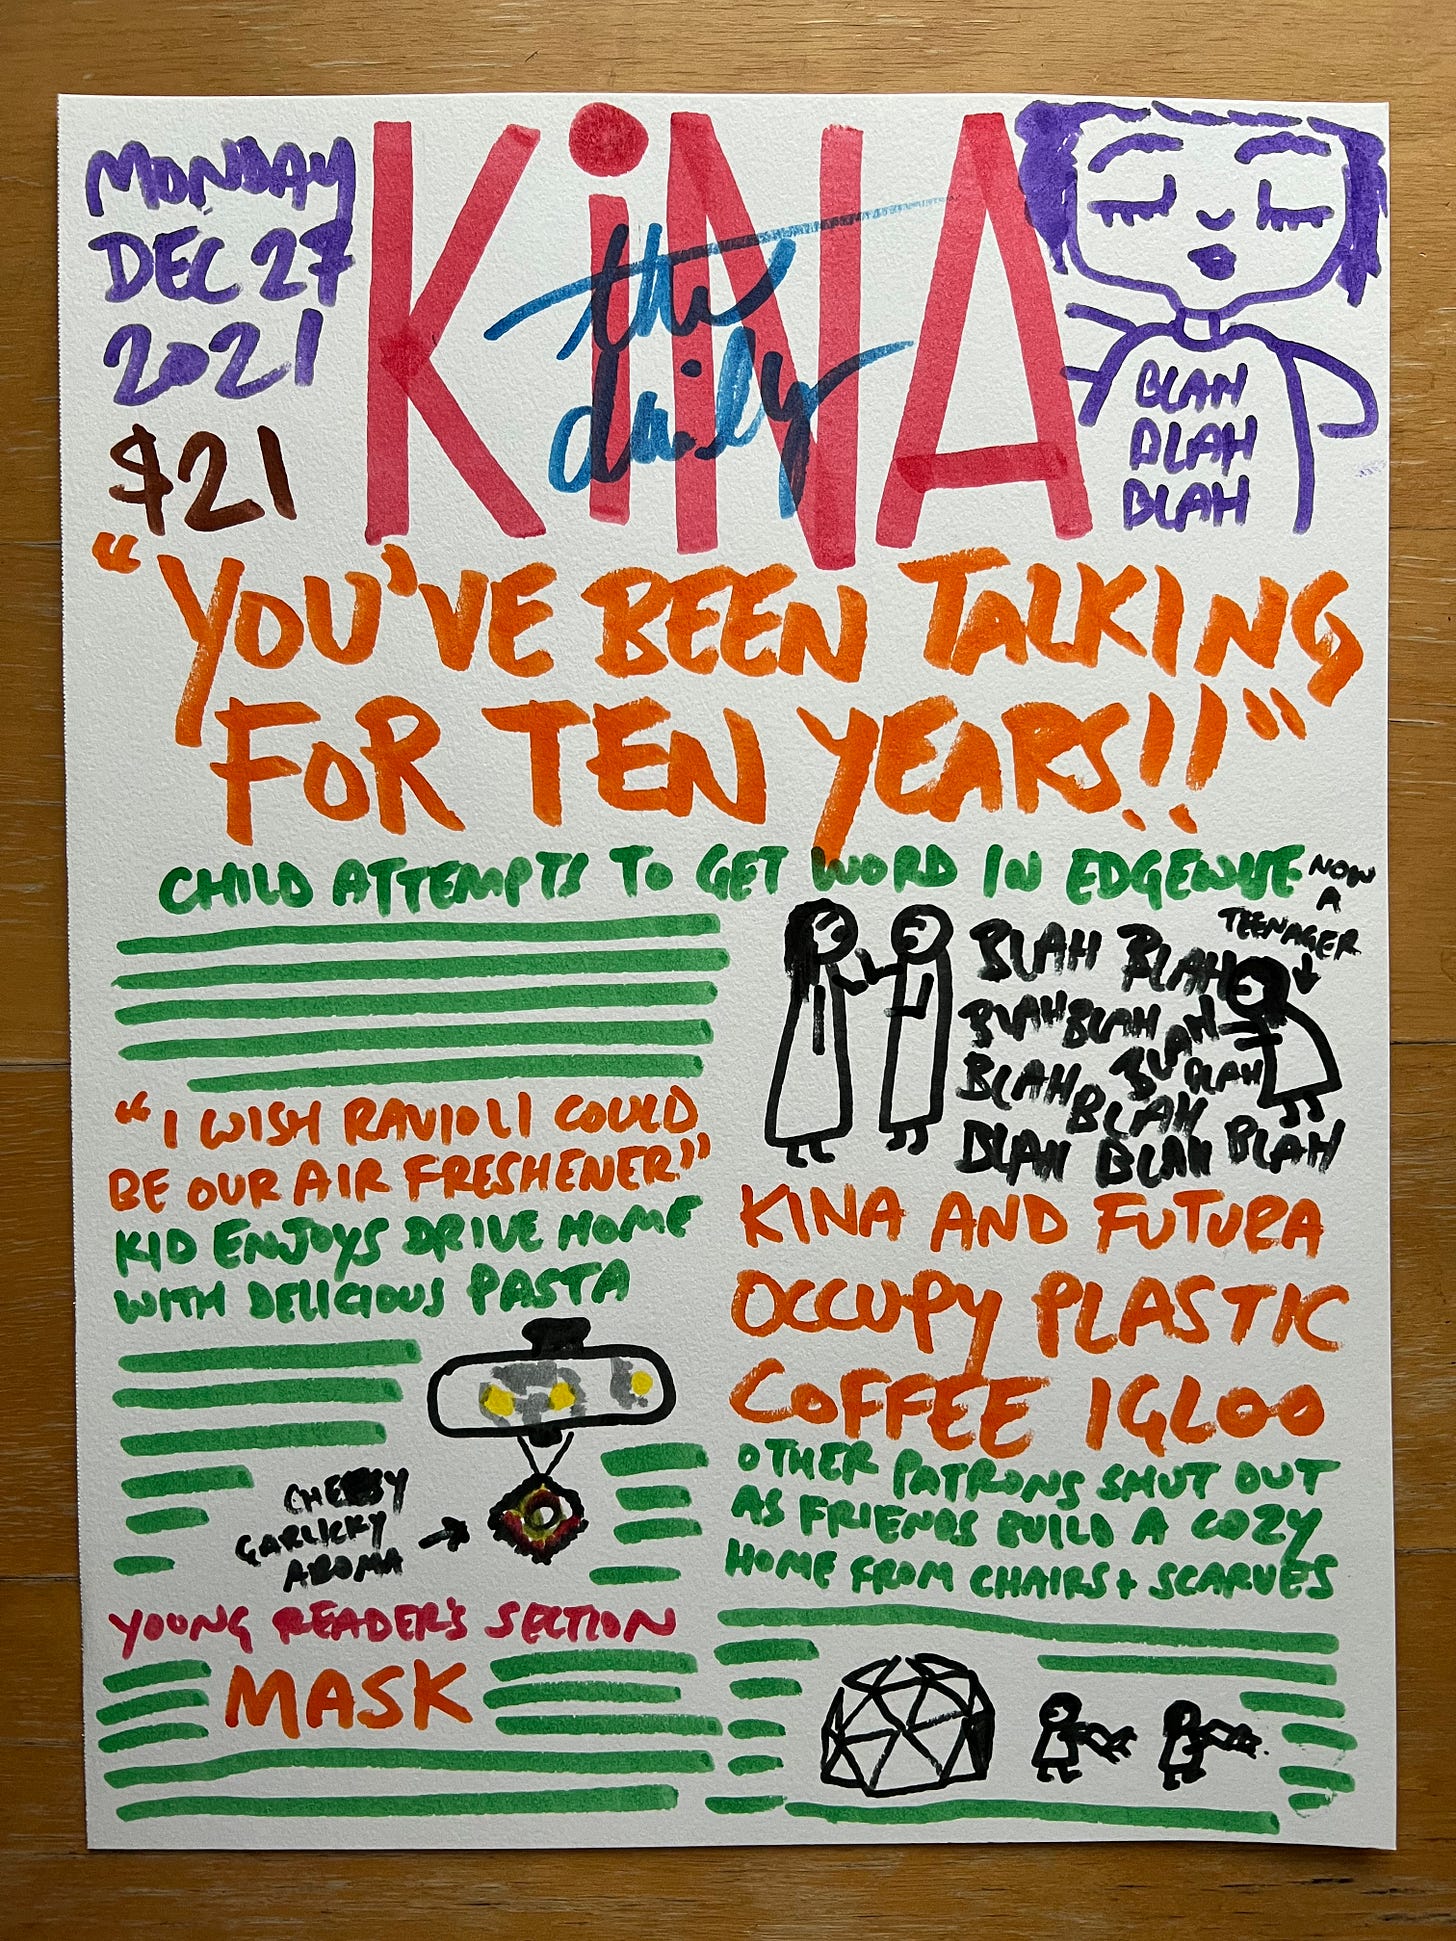 MONDAY
DEC 27
2021
$21
KiNA
the
daily
BLAH
BLAH
BLAH
"YOU'VE BEEN TALKING
FOR TEN YEARS!!"
CHILD ATTEMPTS TO GET WORD IN EDGEWISE
NOW
A
TEENAGER
BLAH BLAH
BLAH BLAH BLAH
BLAH BLAH BLAH
BLAH
BLAH BLAH BLAH
"I WISH RAVIOLI COULD
BE OUR AIR FRESHENER"
KID ENJOYS DRIVE HOME
WITH DELICIOUS PASTA
CHEESY
GARLICKY
AROMA
YOUNG READER'S SECTION
MASK
KINA AND FUTURA
OCCUPY PLASTIC
COFFEE IGLOO
OTHER PATRONS SHUT OUT
AS FRIENDS BUILD A COZY
HOME FROM CHAIRS + SCARVES